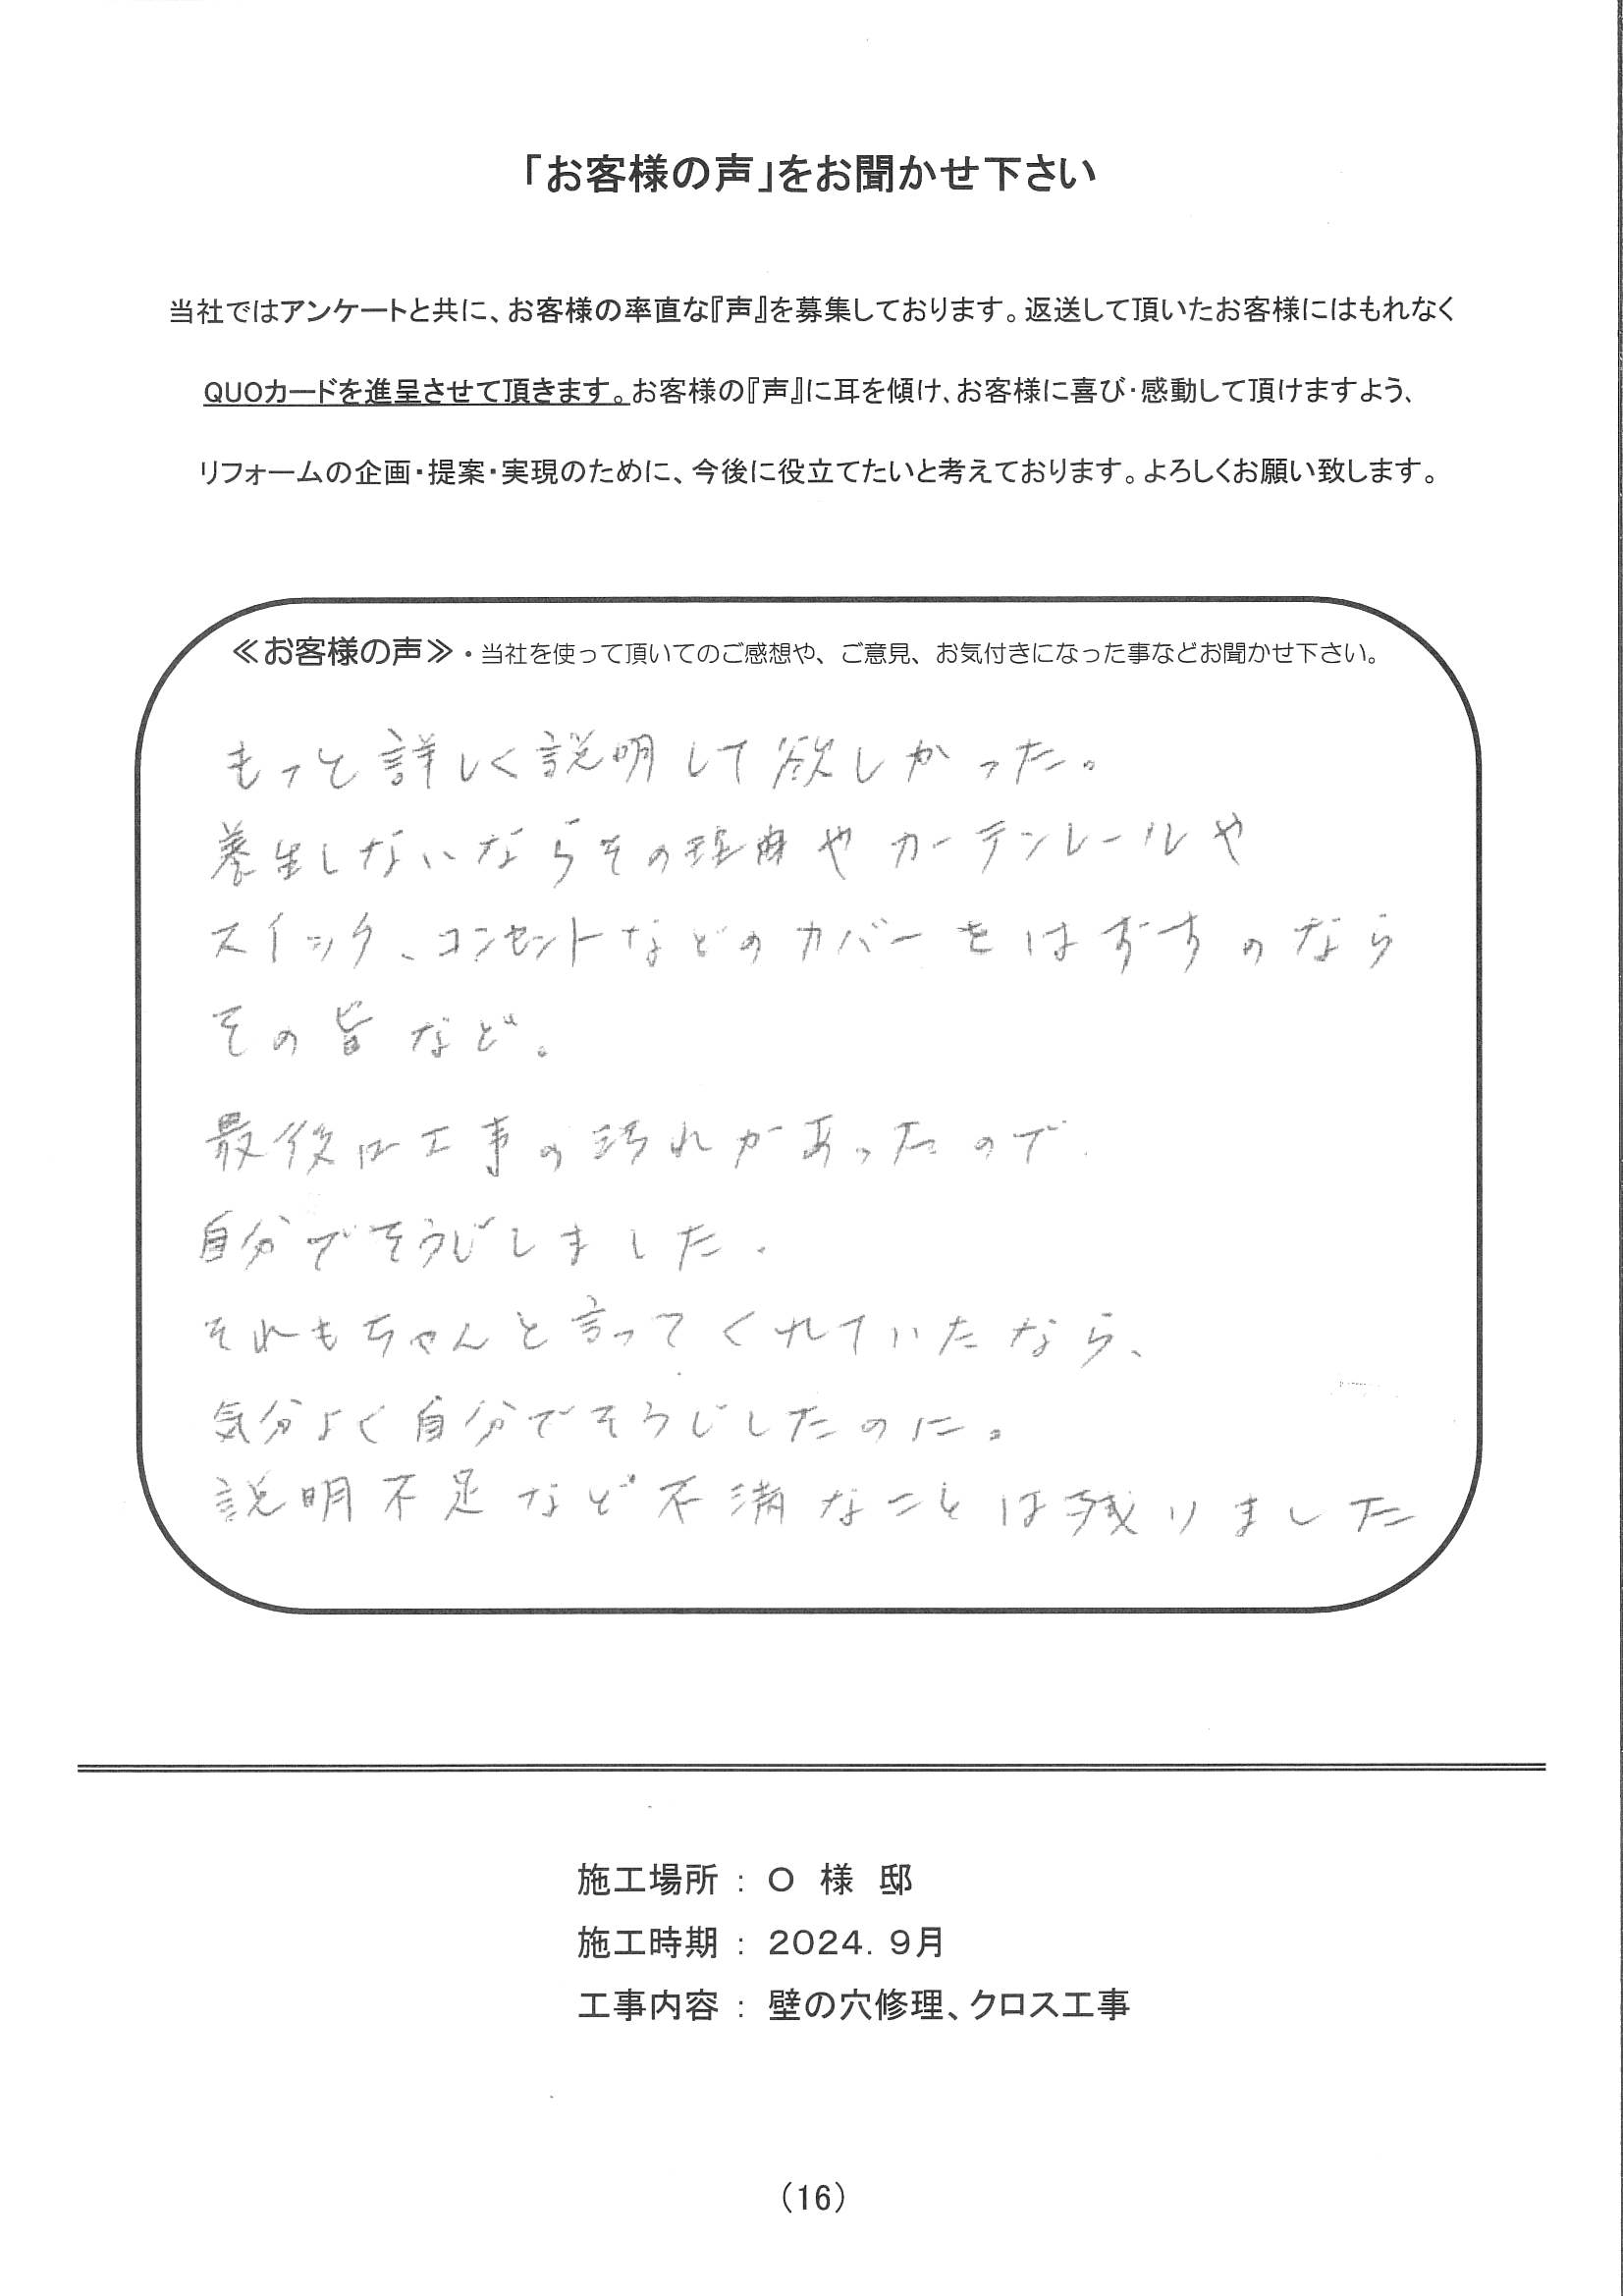 「お客様の声」をお聞かせ下さい
当社ではアンケートと共に、お客様の率直な『声』を募集しております。返送して頂いたお客様にはもれなく
QUOカードを進呈させて頂きます。お客様の『声』に耳を傾け、お客様に喜び・感動して頂けますよう、
リフォームの企画・提案・実現のために、今後に役立てたいと考えております。よろしくお願い致します。
≪お客様の声≫・当社を使って頂いてのご感想や、ご意見、お気付きになった事などお聞かせ下さい。
もっと詳しく説明して欲しかった。
養生しないならその理由やカーテンレールや
スイッチ、コンセントなどのカバーをはずすのなら
その旨など。
最後は工事の汚れがあったので
自分でそうじしました。
それもちゃんと言ってくれていたなら、
気分よく自分でそうじしたのに。
説明不足など不満なことは残りました
施工場所 : O 様 邸
施工時期 : 2024. 9月
工事内容 : 壁の穴修理、クロス工事
(16)